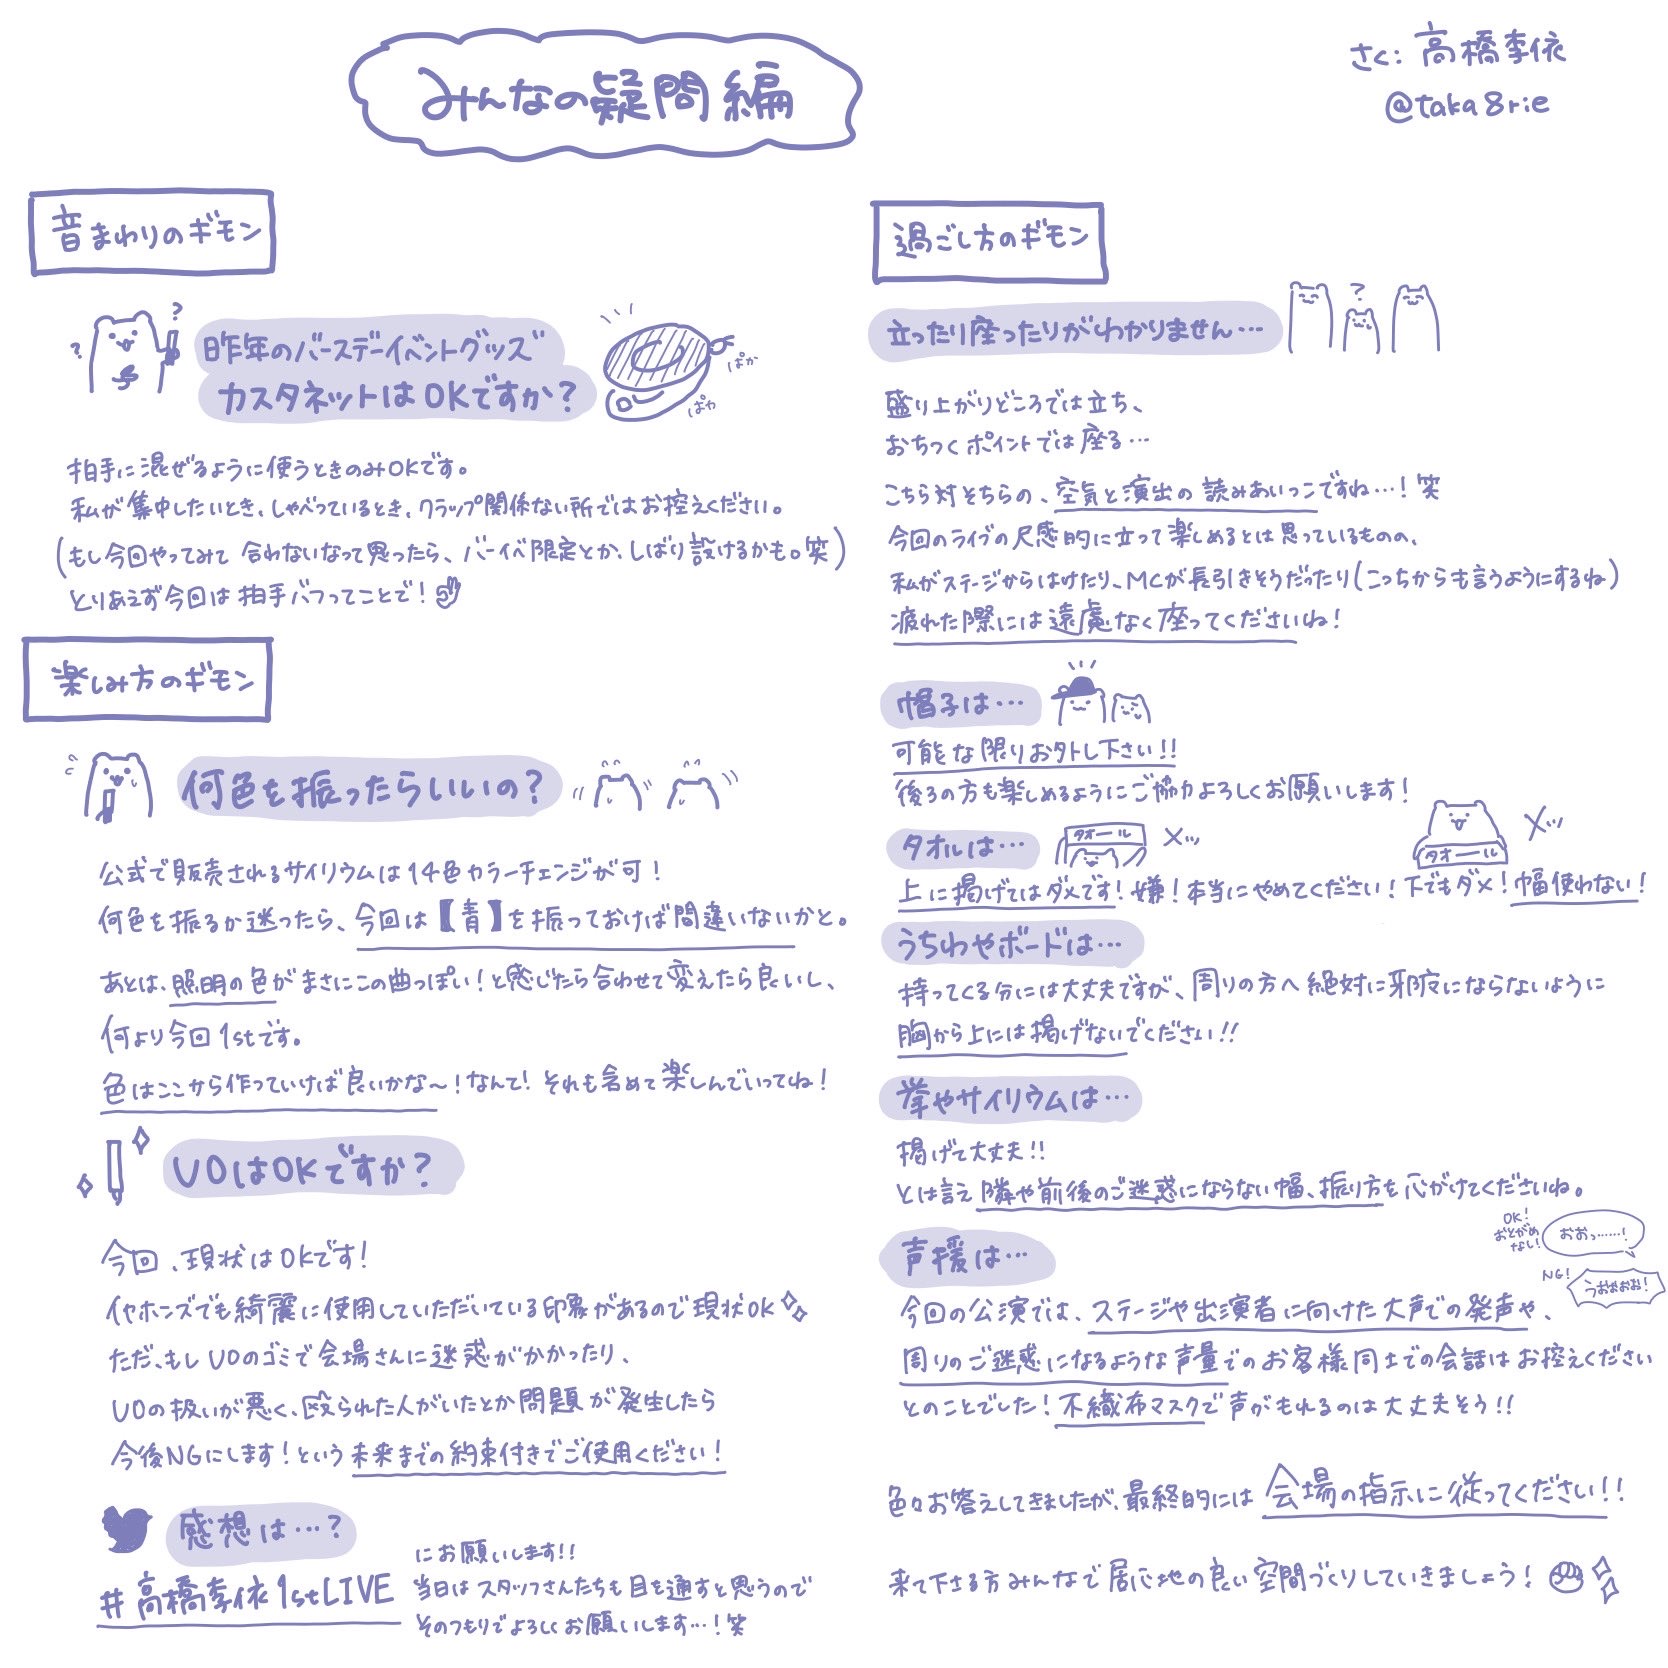 みんなの疑問編
さく: 高橋李依
@taka8rie
音まわりのギモン
?
?
昨年のバースデーイベントグッズ
カスタネットはOKですか?
ぱか
ぱか
拍手に混ぜるように使うときのみOKです。
私が集中したいとき、しゃべっているとき、クラップ関係ない所ではお控えください。
(もし今回やってみて合わないなって思ったら、バーイベ限定とか、しばり設けるかも。笑)
とりあえず今回は拍手バフってことで!
楽しみ方のギモン
何色を振ったらいいの?
公式で販売されるサイリウムは14色カラーチェンジが可!
何色を振るか迷ったら、今回は【青】を振っておけば間違いないかと。
あとは、照明の色がまさにこの曲っぽい!と感じたら合わせて変えたら良いし、
何より今回1stです。
色はここから作っていけば良いかな〜!なんて!それも含めて楽しんでいってね!
UOはOKですか?
今回、現状はOKです!
イヤホンズでも綺麗に使用していただいている印象があるので現状OK
ただ、もしUOのゴミで会場さんに迷惑がかかったり、
UOの扱いが悪く、殴られた人がいたとか問題が発生したら
今後NGにします!という未来までの約束付きでご使用ください!
感想は…?
#高橋李依1stLIVE
にお願いします!!
当日はスタッフさんたちも目を通すと思うので
そのつもりでよろしくお願いします…!笑
過ごし方のギモン
立ったり座ったりがわかりません…
?
盛り上がりどころでは立ち、
おちつくポイントでは座る…
こちら対そちらの、空気と演出の読みあいっこですね…!笑
今回のライブの尺感的に立って楽しめるとは思っているものの、
私がステージからはけたり、MCが長引きそうだったり(こっちからも言うようにするね)
疲れた際には遠慮なく座ってくださいね!
帽子は…
可能な限りお外し下さい!!
後ろの方も楽しめるようにご協力よろしくお願いします!
タオルは…
タオール
タオール
上に掲げてはダメです!嫌!本当にやめてください!下でもダメ!幅使わない!
うちわやボードは…
持ってくる分には大丈夫ですが、周りの方へ絶対に邪魔にならないように
胸から上には掲げないでください!!
拳やサイリウムは…
掲げて大丈夫!!
とは言え隣や前後のご迷惑にならない幅、振り方を心がけてくださいね。
声援は…
OK!
おとがめ
なし!
おおっ……!
NG!
うおおおお!
今回の公演では、ステージや出演者に向けた大声での発声や、
周りのご迷惑になるような声量でのお客様同士での会話はお控えください
とのことでした!不織布マスクで声がもれるのは大丈夫そう!!
色々お答えしてきましたが、最終的には会場の指示に従ってください!!
来て下さる方みんなで居心地の良い空間づくりしていきましょう!